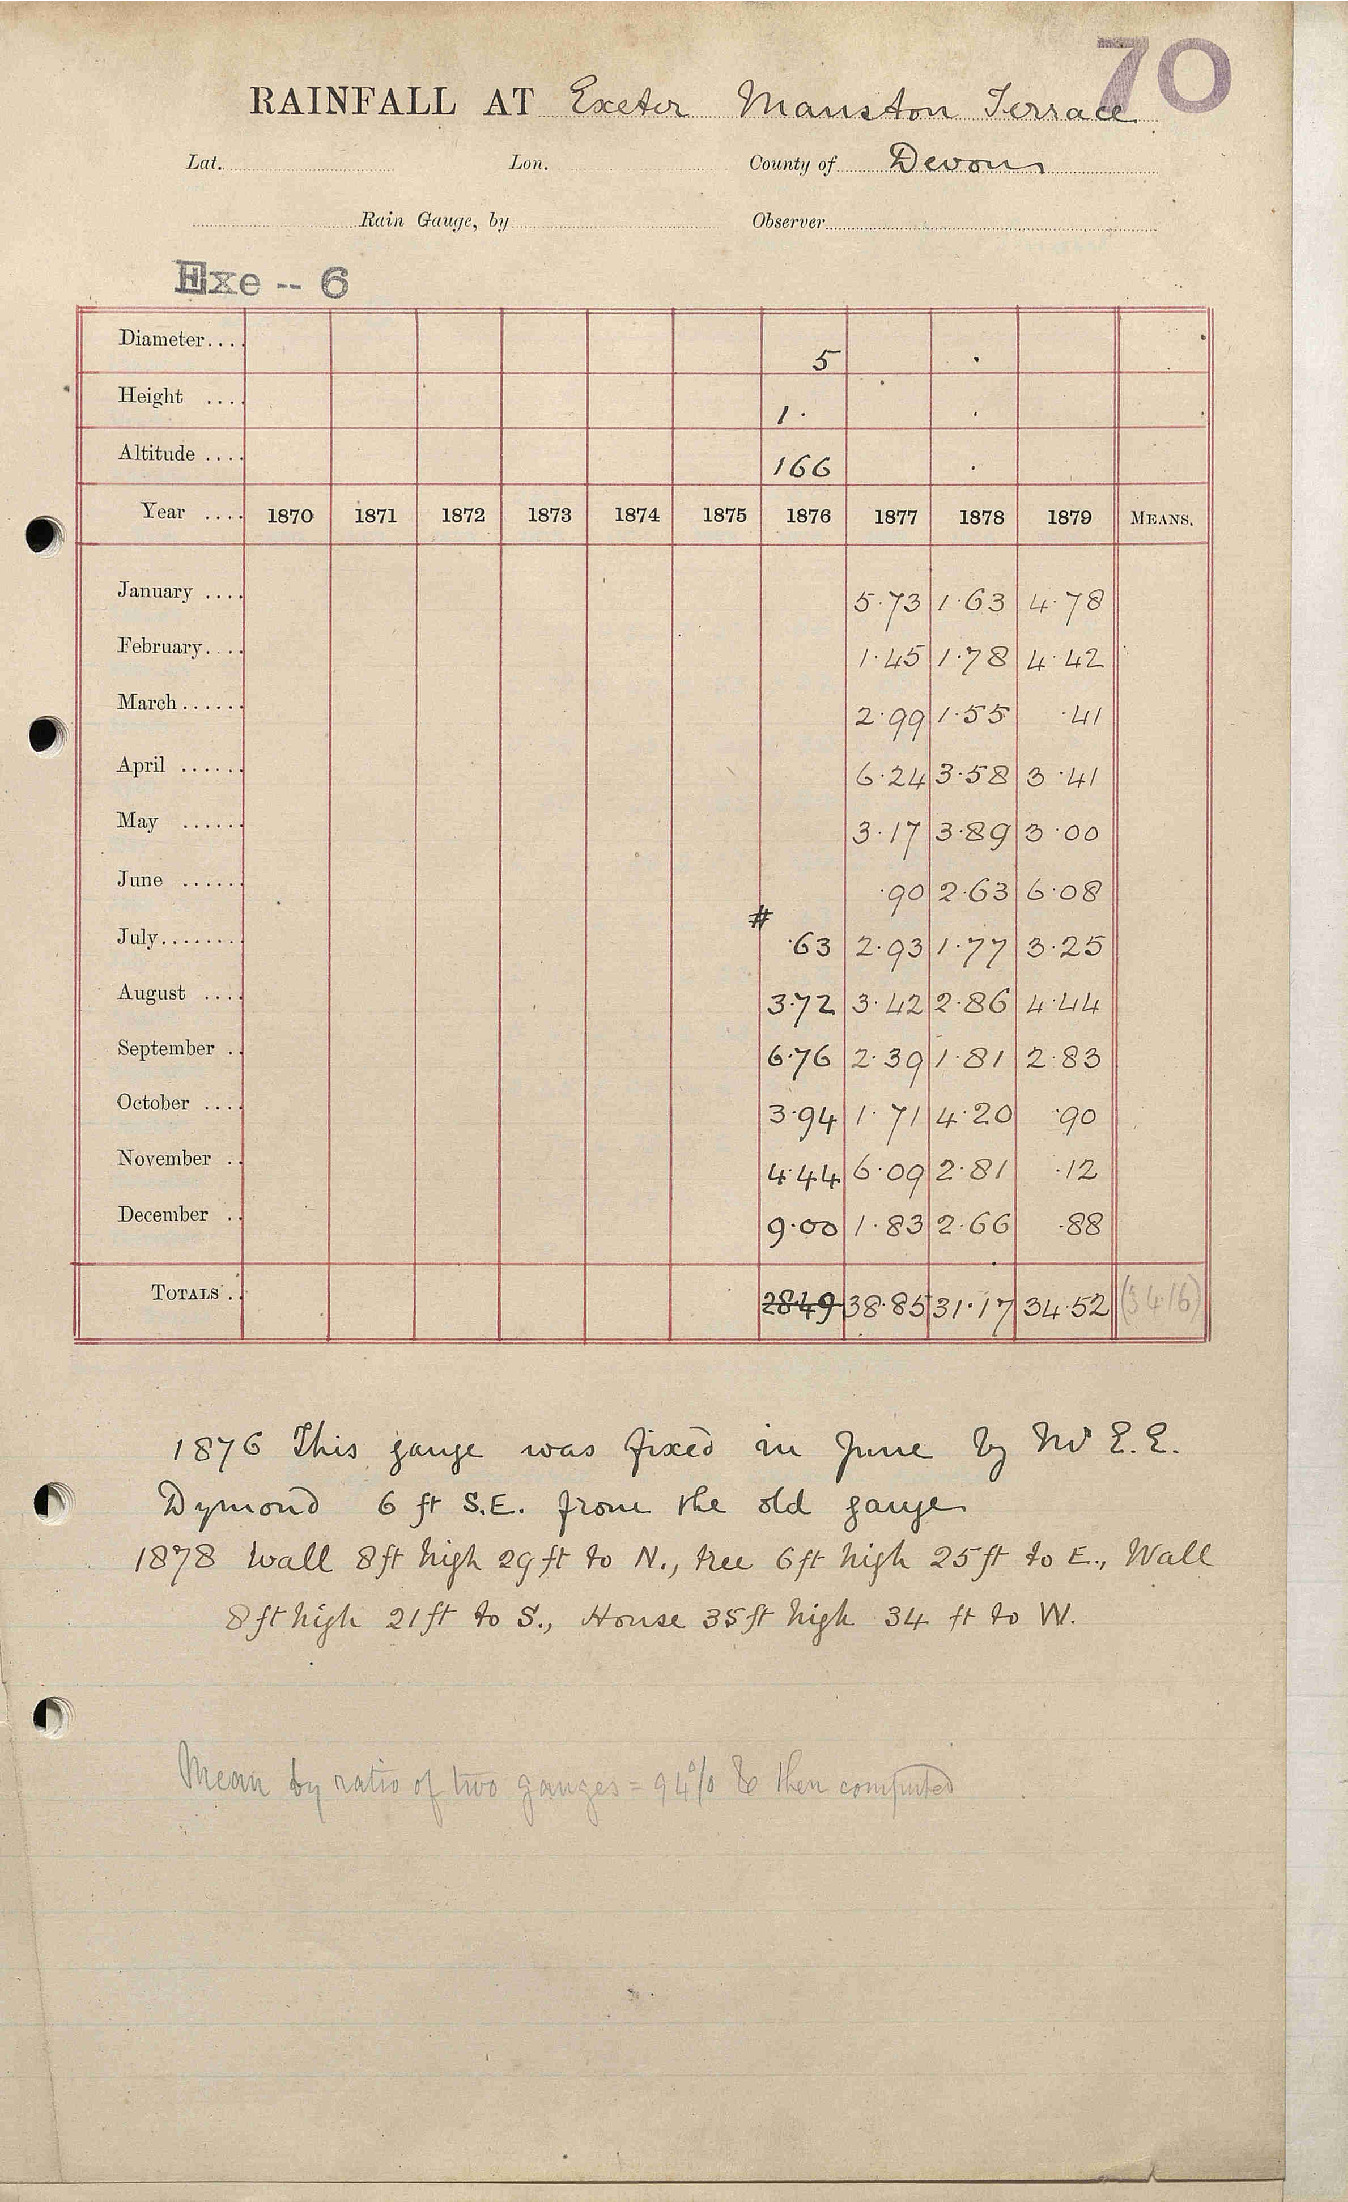 70
RAINFALL AT Exeter Manston Terrace
Lat. Lon. County of Devon
Rain Gauge, by Observer
Exe -- 6
Diameter.... 5
Height .... 1.
Altitude .... 166
Year .... 1870 1871 1872 1873 1874 1875 1876 1877 1878 1879 MEANS.
January .... 5.73 1.63 4.78
February.... 1.45 1.78 4.42
March...... 2.99 1.55 .41
April ...... 6.24 3.58 3.41
May ...... 3.17 3.89 3.00
June ...... .90 2.63 6.08
#
July........ .63 2.93 1.77 3.25
August .... 3.72 3.42 2.86 4.44
September .. 6.76 2.39 1.81 2.83
October .... 3.94 1.71 4.20 .90
November .. 4.44 6.09 2.81 .12
December .. 9.00 1.83 2.66 .88
TOTALS .. 28.49 38.85 31.17 34.52 (34.16)
1876 This gauge was fixed in June by Mr E.E.
Dymond 6 ft S.E. from the old gauge
1878 Wall 8ft high 29ft to N., tree 6ft high 25ft to E., Wall
8ft high 21ft to S., House 35ft high 34 ft to W.
Mean by ratio of two gauges = 94% & then computed